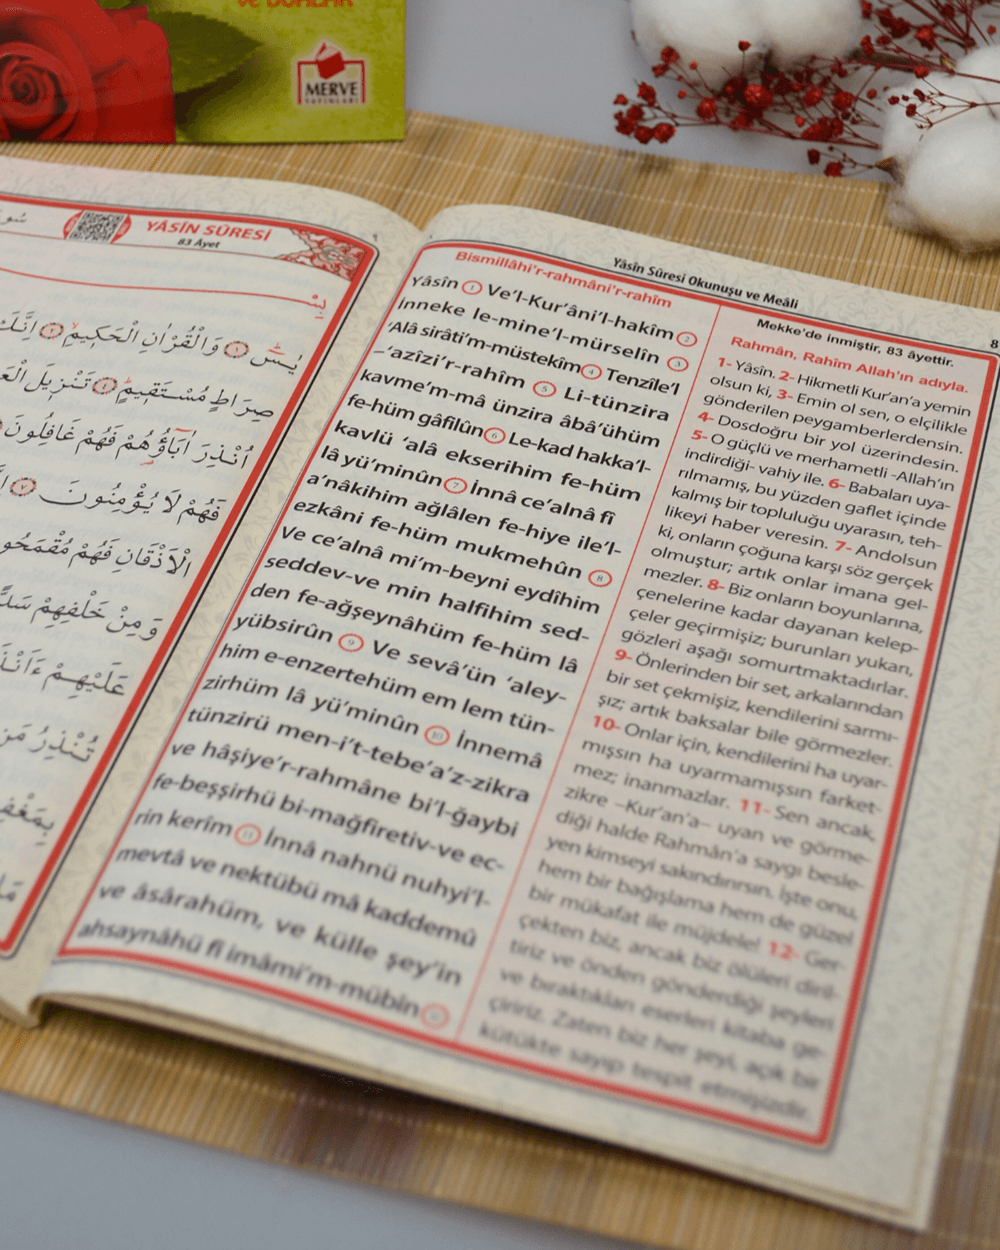 ve DUALAR
MERVE
YAYINLARI
YÂSÎN SÛRESİ
83 Âyet
يٰسٓ ۝١ وَالْقُرْاٰنِ الْحَك۪يمِ ۝٢ اِنَّكَ
صِرَاطٍ مُسْتَق۪يمٍ ۝٤ تَنْز۪يلَ
اُنْذِرَ اٰبَٓاؤُ۬هُمْ فَهُمْ غَافِلُونَ
فَهُمْ لَا يُؤْمِنُونَ ۝٧
الْاَذْقَانِ فَهُمْ مُقْمَحُو
وَمِنْ خَلْفِهِمْ سَدًّا
عَلَيْهِمْ ءَاَنْذَ
تُنْذِرُ مَنِ
بِمَغْفِ
Yâsîn Sûresi Okunuşu ve Meâli
8
Bismillâhi'r-rahmâni'r-rahîm
Yâsîn 1 Ve'l-Kur'âni'l-hakîm 2
İnneke le-mine'l-mürselîn 3
'Alâ sirâti'm-müstekîm 4 Tenzîle'l
–'azîzi'r-rahîm 5 Li-tünzira
kavme'm-mâ ünzira âbâ'ühüm
fe-hüm gâfilûn 6 Le-kad hakka'l-
kavlü 'alâ ekserihim fe-hüm
lâ yü'minûn 7 İnnâ ce'alnâ fî
a'nâkihim ağlâlen fe-hiye ile'l-
ezkâni fe-hüm mukmehûn 8
Ve ce'alnâ mi'm-beyni eydîhim
seddev-ve min halfihim sed-
den fe-ağşeynâhüm fe-hüm lâ
yübsirûn 9 Ve sevâ'ün 'aley-
him e-enzertehüm em lem tün-
zirhüm lâ yü'minûn 10 İnnemâ
tünzirü men-i't-tebe'a'z-zikra
ve hâşiye'r-rahmâne bi'l-ğaybi
fe-beşşirhü bi-mağfiretiv-ve ec-
rin kerîm 11 İnnâ nahnü nuhyi'l-
mevtâ ve nektübü mâ kaddemû
ve âsârahüm, ve külle şey'in
ahsaynâhü fî imâmi'm-mübîn
Mekke'de inmiştir. 83 âyettir.
Rahmân, Rahîm Allah'ın adıyla.
1- Yâsîn. 2- Hikmetli Kur'an'a yemin
olsun ki, 3- Emin ol sen, o elçilikle
gönderilen peygamberlerdensin.
4- Dosdoğru bir yol üzerindesin.
5- O güçlü ve merhametli -Allah'ın
indirdiği- vahiy ile. 6- Babaları uya-
rılmamış, bu yüzden gaflet içinde
kalmış bir topluluğu uyarasın, teh-
likeyi haber veresin. 7- Andolsun
ki, onların çoğuna karşı söz gerçek
olmuştur; artık onlar imana gel-
mezler. 8- Biz onların boyunlarına,
çenelerine kadar dayanan kelep-
çeler geçirmişiz; burunları yukarı,
gözleri aşağı somurtmaktadırlar.
9- Önlerinden bir set, arkalarından
bir set çekmişiz, kendilerini sarmı-
şız; artık baksalar bile görmezler.
10- Onlar için, kendilerini ha uyar-
mışsın ha uyarmamışsın farket-
mez; inanmazlar. 11- Sen ancak,
zikre –Kur'an'a– uyan ve görme-
diği halde Rahmân'a saygı besle-
yen kimseyi sakındırırsın. İşte onu,
hem bir bağışlama hem de güzel
bir mükafat ile müjdele! 12- Ger-
çekten biz, ancak biz ölüleri diril-
tiriz ve önden gönderdiği şeyleri
ve bıraktıkları eserleri kitaba ge-
çiririz. Zaten biz her şeyi, açık bir
kütükte sayıp tespit etmişizdir.